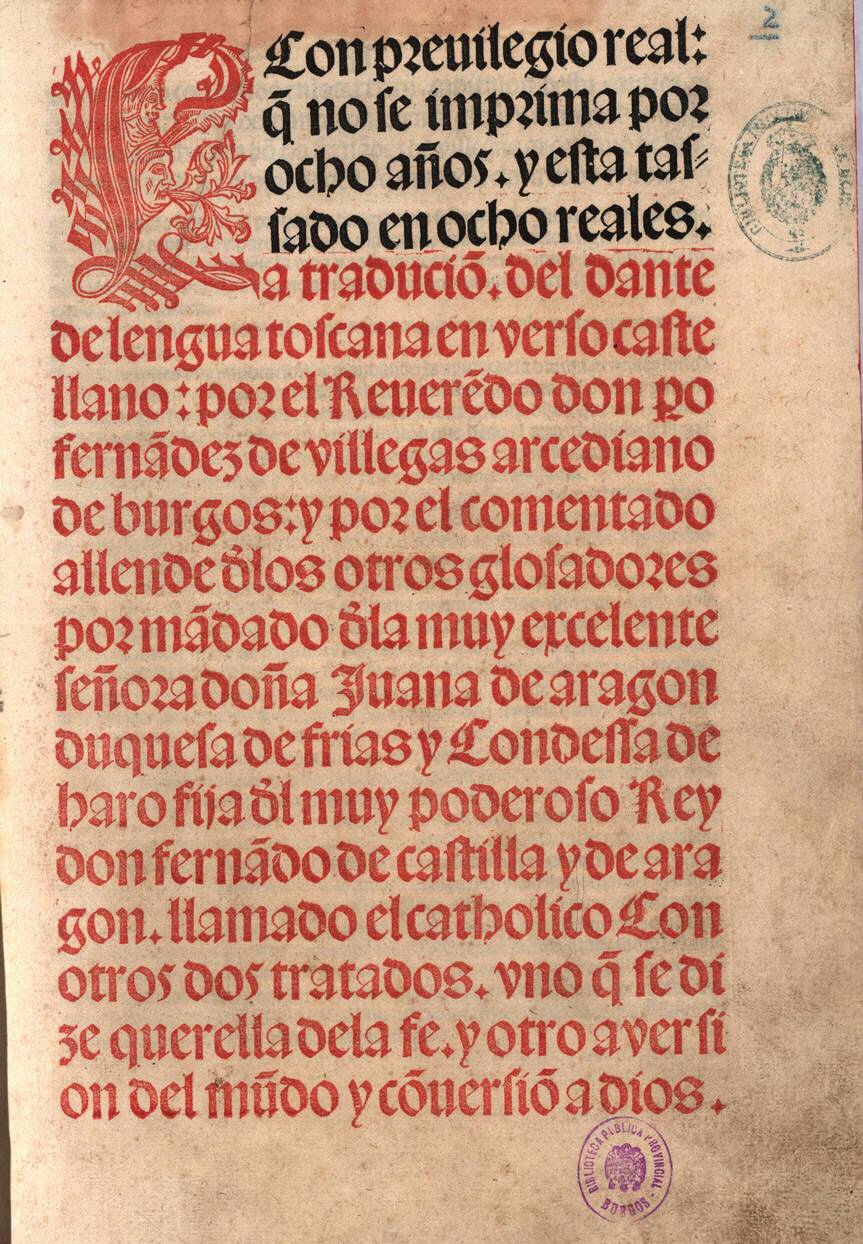 2
Con preuilegio real:
q̃ no se imprima por
ocho años. y esta tas⸗
sado en ocho reales.
La traduciõ. del dante
de lengua toscana en verso caste
llano: por el Reuerẽdo don po
fernãdez de villegas arcediano
de burgos: y por el comentado
allende d̃los otros glosadores
por mãdado d̃la muy excelente
señora doña Juana de aragon
duquesa de frias y Condessa de
haro fija d̃l muy poderoso Rey
don fernãdo de castilla y de ara
gon. llamado el catholico Con
otros dos tratados. vno q̃ se di
ze querella dela fe. y otro aversi
on del mũdo y cõuersiõ a dios.
BIBLIOTECA PUBLICA PROVINCIAL
BURGOS